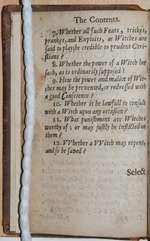 The Contents.
7. Whether all such Feats, tricks,
prankes, and Exploits, as Witches are
said to play, be credible to prudent Chri-
stians?
8. Whether the power of a Witch be
such, as is ordinarily supposed?
9. How the power and malice of Wit-
ches may be prevented, or redressed with
a good Conscience?
10. Whether it be lawfull to consult
with a Witch upon any occasion?
11. What punishment are Witches
worthy of: or may justly be inflicted on
them?
12. Whether a Witch may repent,
and so be saved?
Select